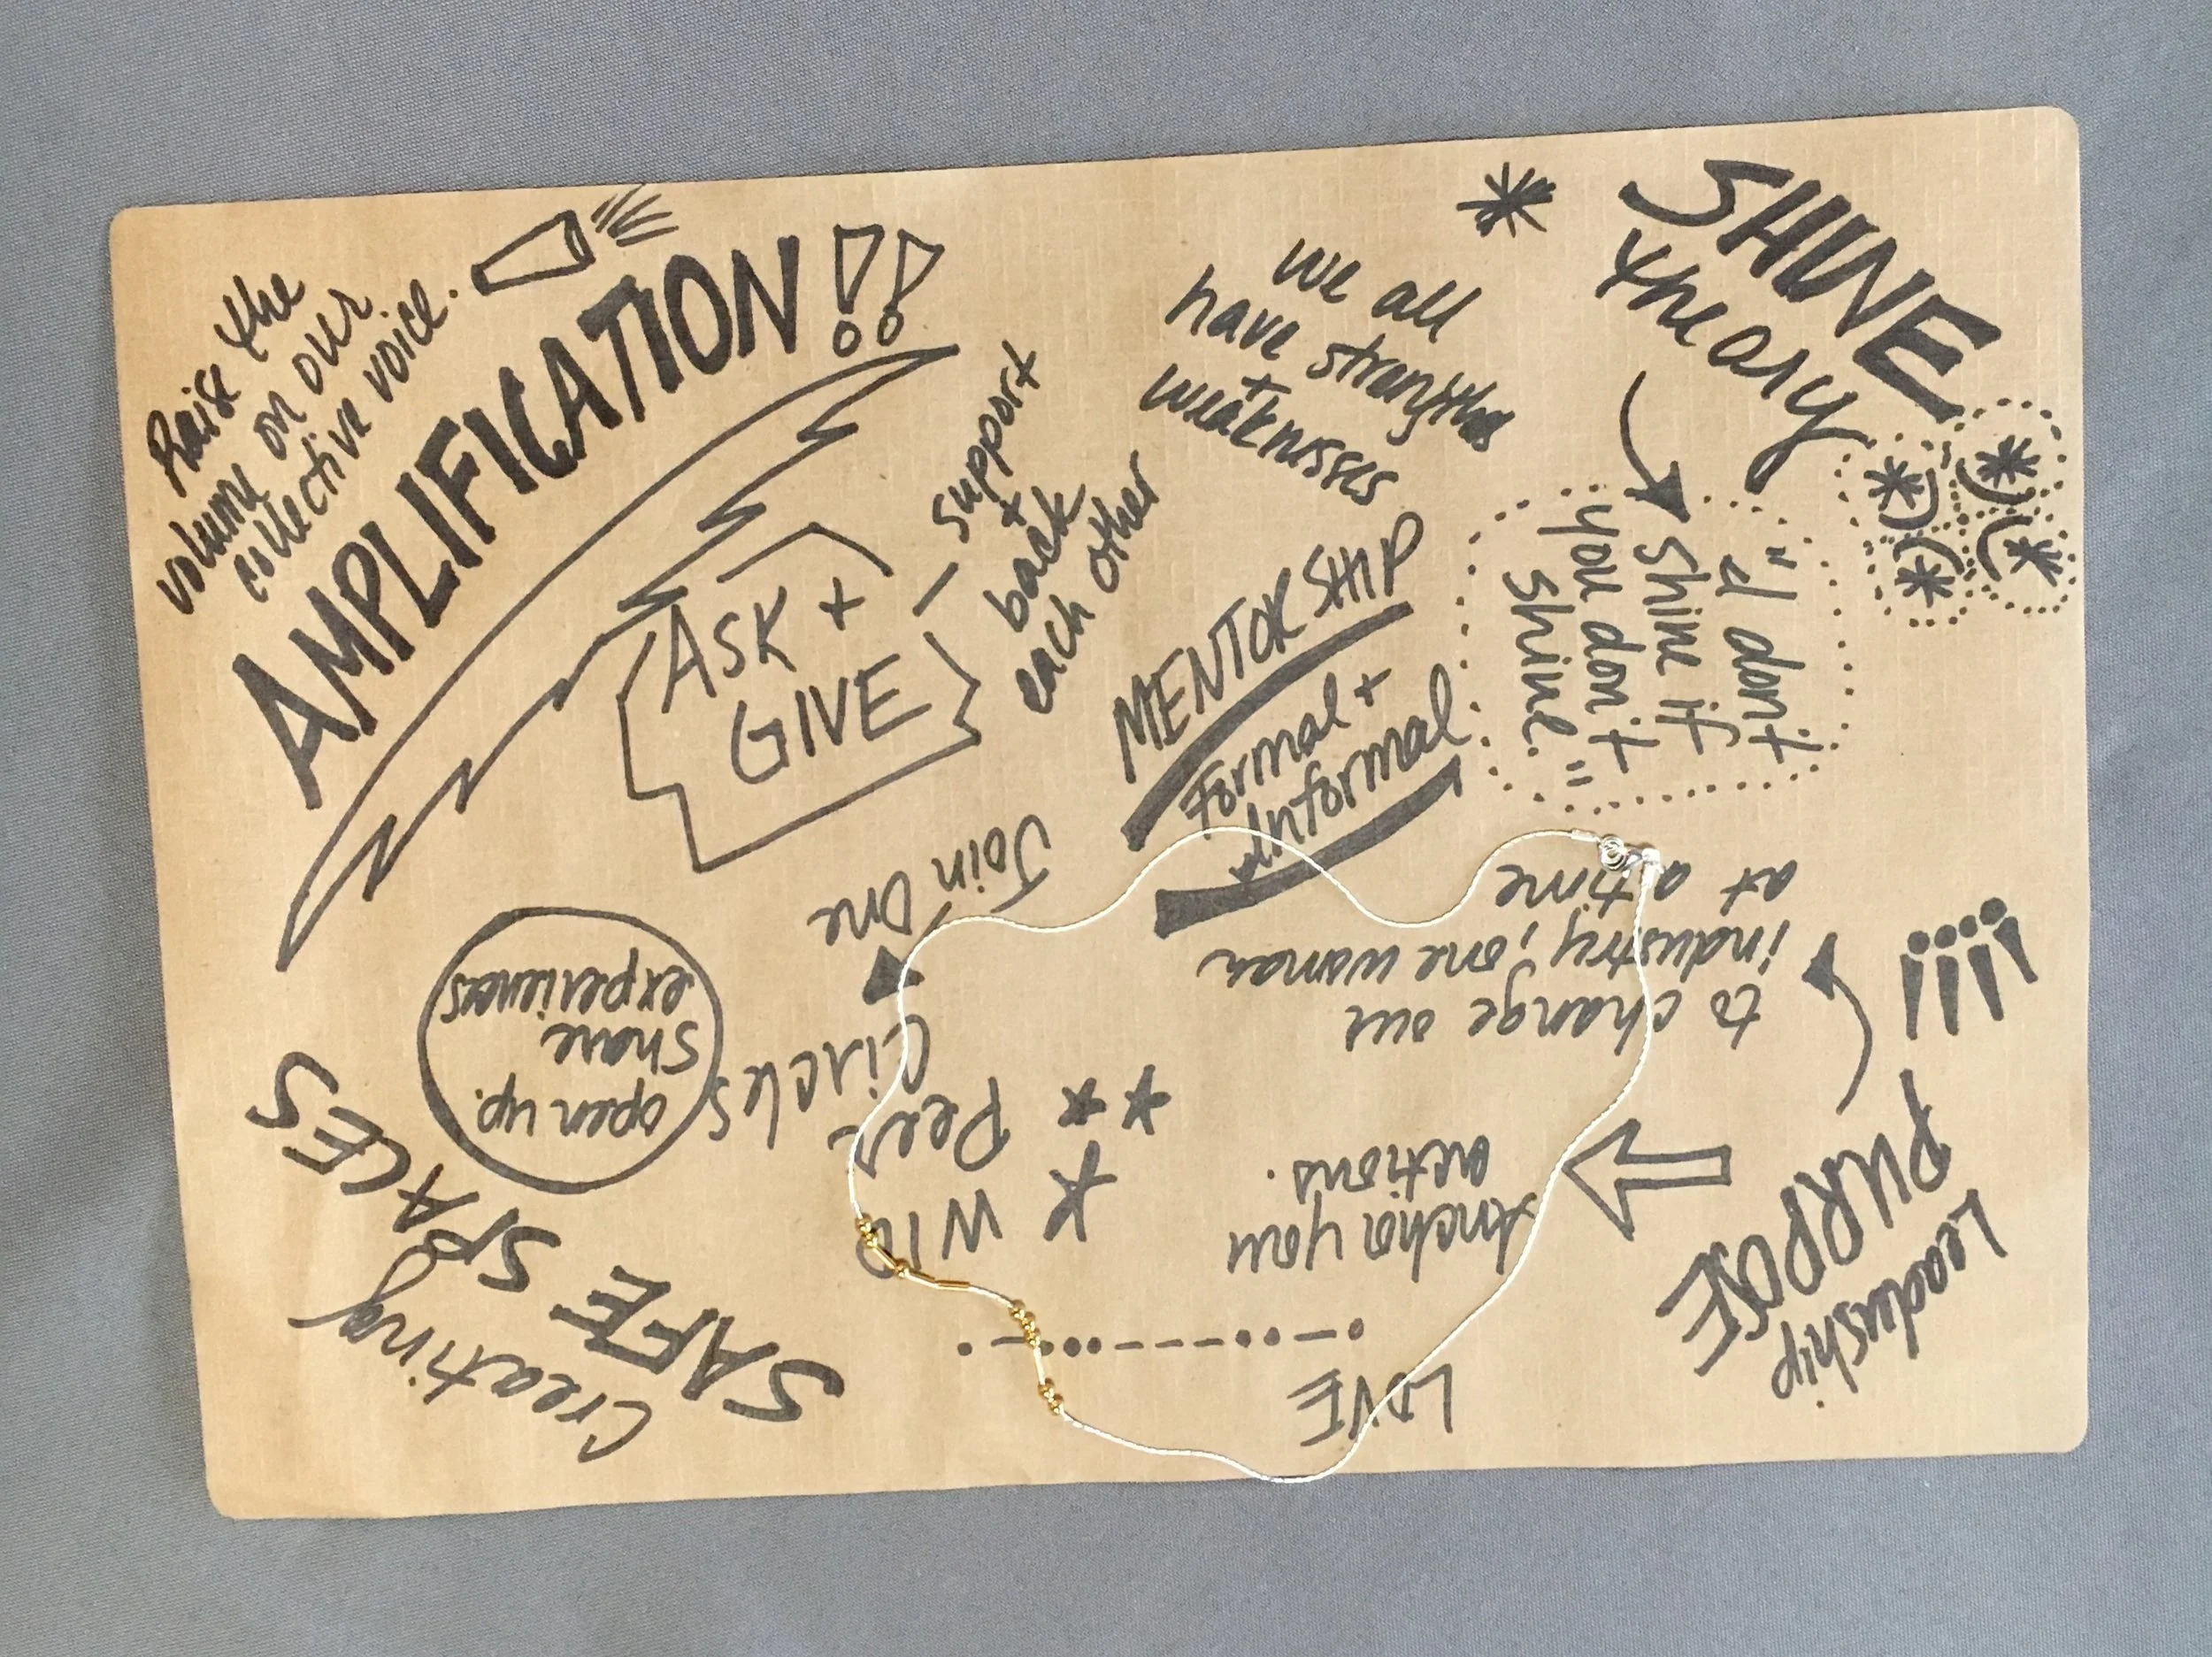 Raise the
volume on our
collective voice.
AMPLIFICATION!!
ASK +
GIVE
- support
+
back
each other
we all
have strengths
+
weaknesses
SHINE
theory
"I don't
shine if
you don't
shine."
MENTORSHIP
Formal +
Informal
Leadership
PURPOSE
!!!!
to change our
industry, one woman
at a time
Anchor your
actions.
LOVE
WIA
Peer
Circles
Join One
Creating
SAFE SPACES
open up.
Share
experiences